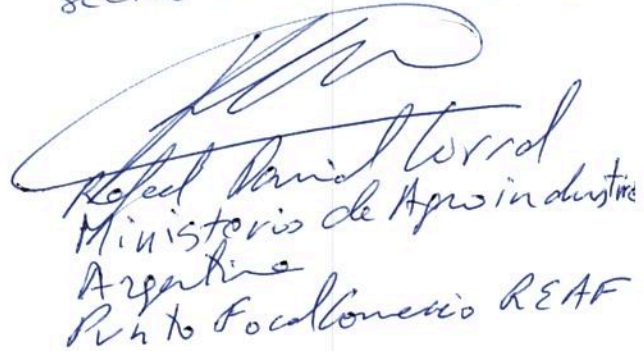 Rafael Daniel Corral
Ministerio de Agroindustria
Argentina
Punto Focal Comercio REAF